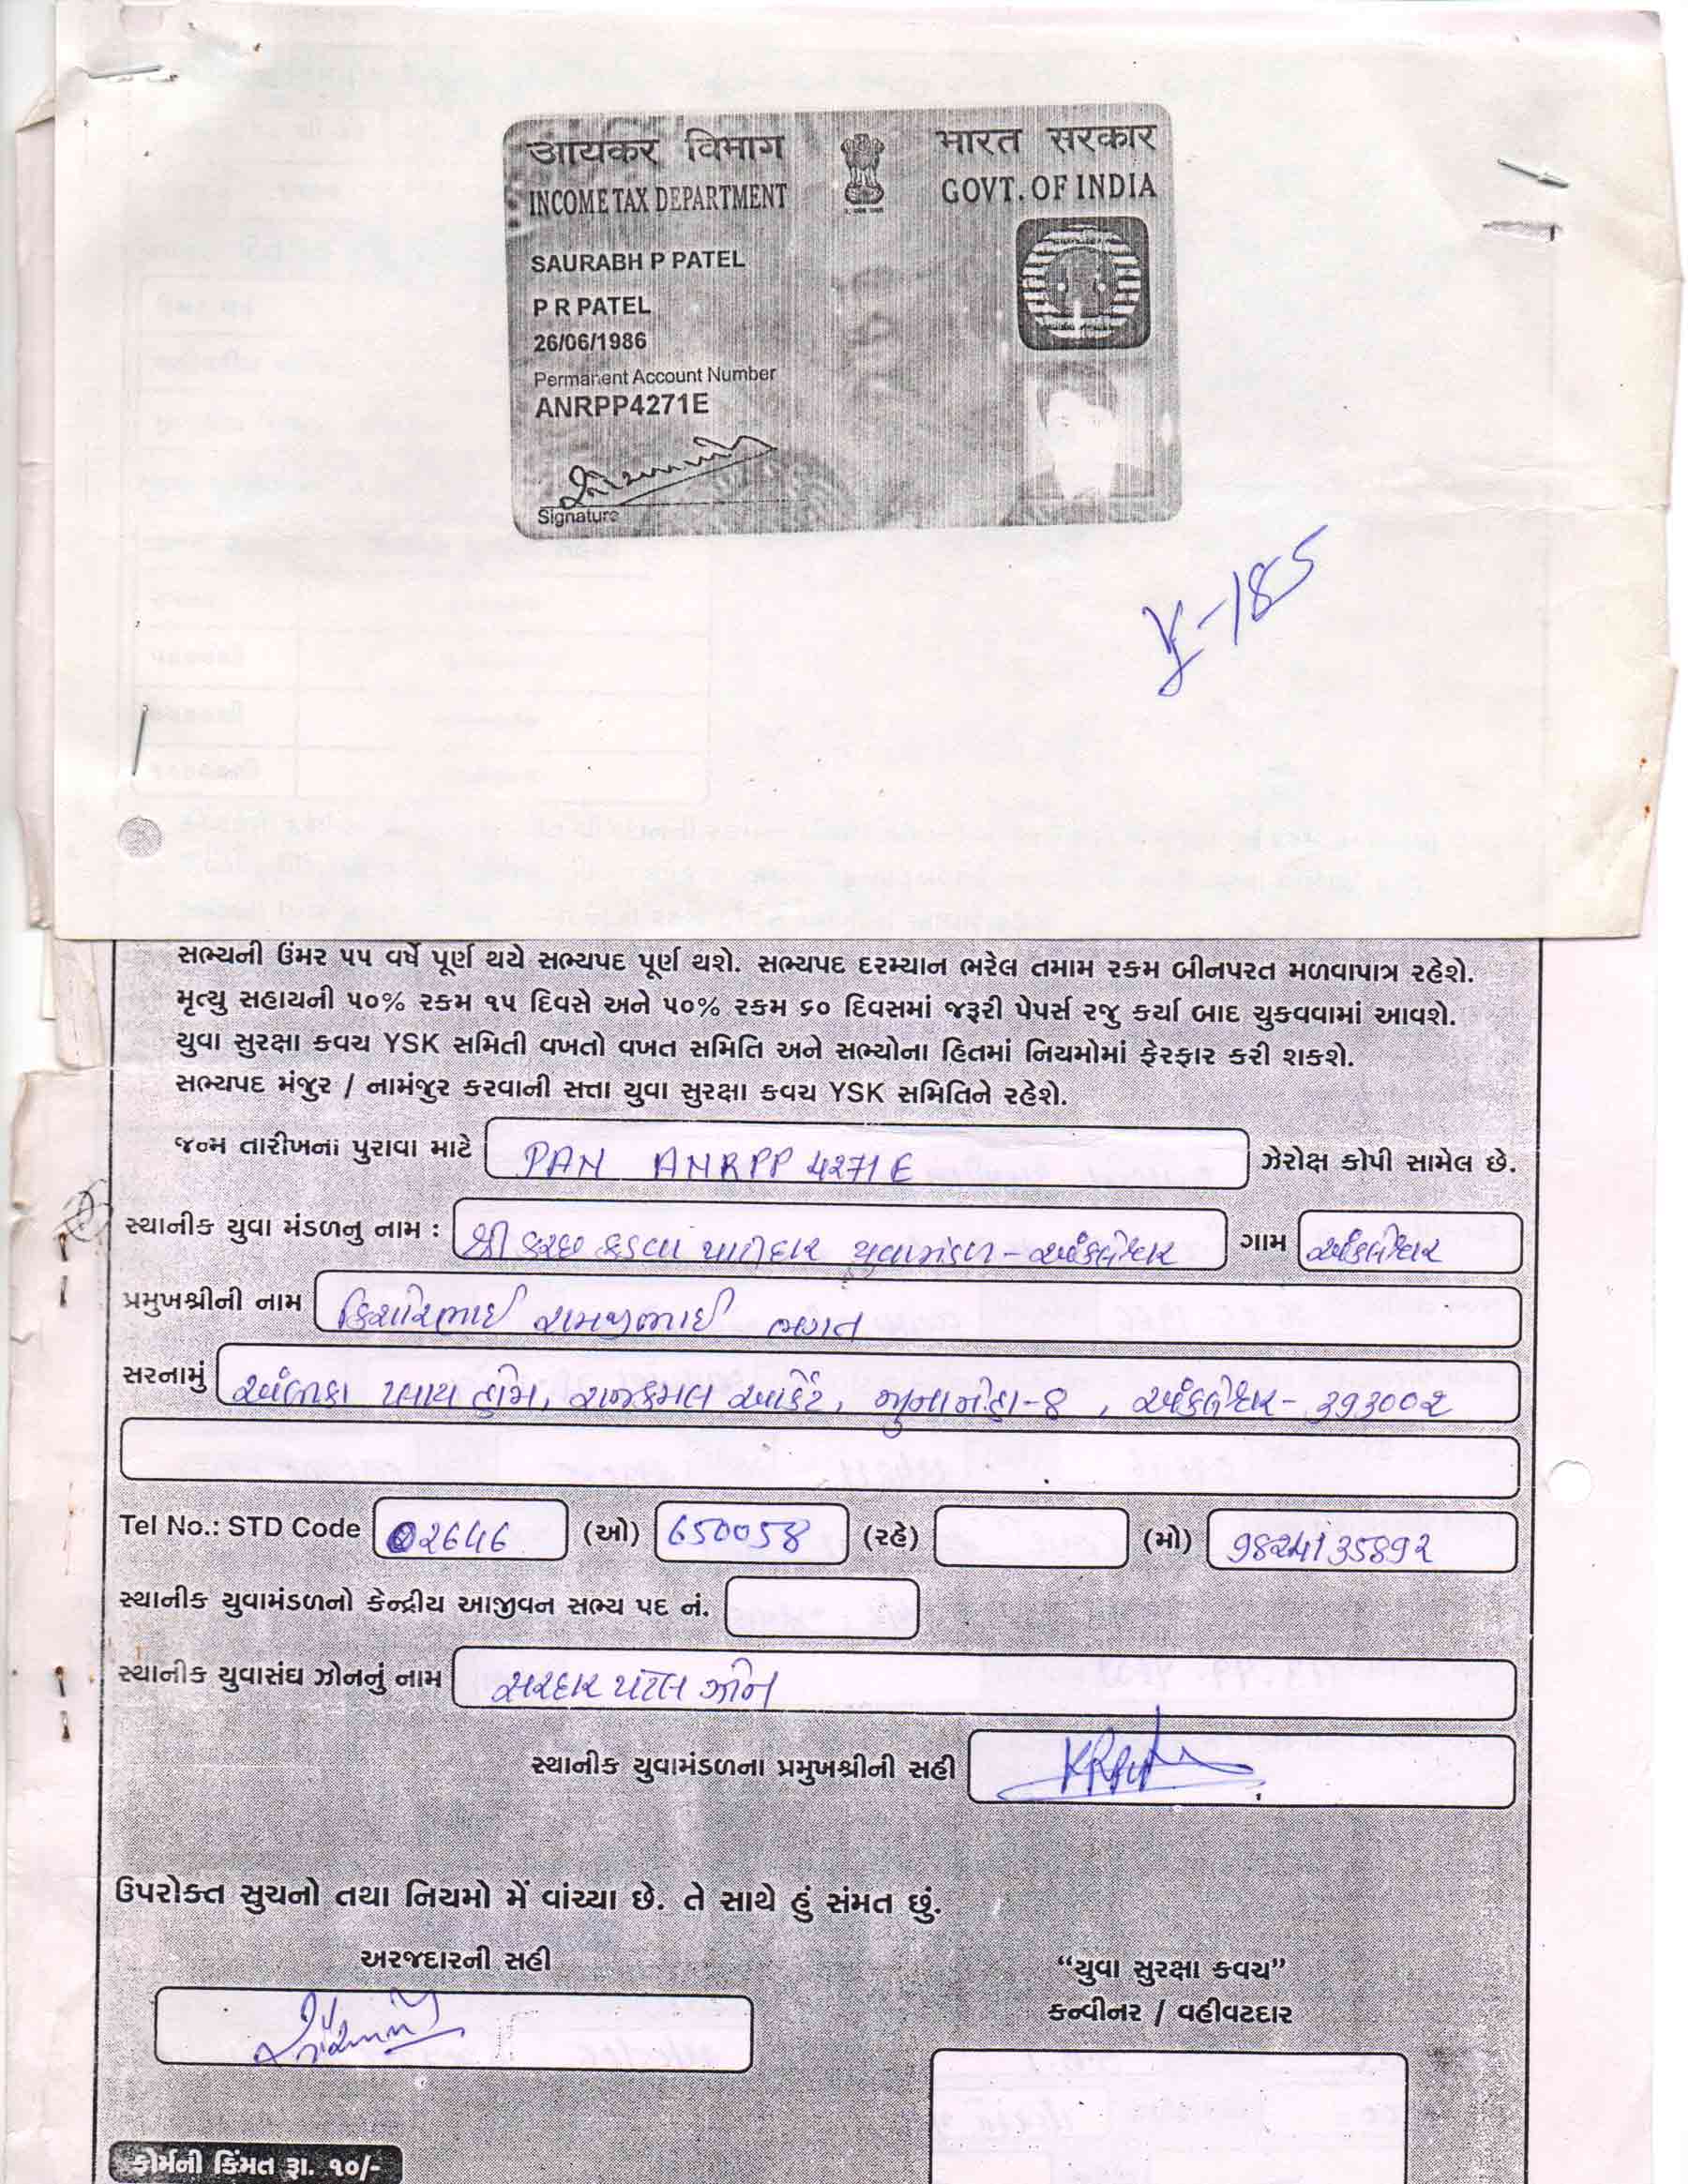 आयकर विभाग भारत सरकार
INCOME TAX DEPARTMENT GOVT. OF INDIA
SAURABH P PATEL
P R PATEL
26/06/1986
Permanent Account Number
ANRPP4271E
Signature
Y-185
સભ્યની ઉંમર ૫૫ વર્ષે પૂર્ણ થયે સભ્યપદ પૂર્ણ થશે. સભ્યપદ દરમ્યાન ભરેલ તમામ રકમ બીનપરત મળવાપાત્ર રહેશે.
મૃત્યુ સહાયની ૫૦% રકમ ૧૫ દિવસે અને ૫૦% રકમ ૬૦ દિવસમાં જરૂરી પેપર્સ રજુ કર્યા બાદ ચુકવવામાં આવશે.
યુવા સુરક્ષા કવચ YSK સમિતી વખતો વખત સમિતિ અને સભ્યોના હિતમાં નિયમોમાં ફેરફાર કરી શકશે.
સભ્યપદ મંજુર / નામંજુર કરવાની સત્તા યુવા સુરક્ષા કવચ YSK સમિતિને રહેશે.
જન્મ તારીખનાં પુરાવા માટે PAN ANRPP 4271E ઝેરોક્ષ કોપી સામેલ છે.
સ્થાનીક યુવા મંડળનુ નામ : શ્રી કચ્છ કડવા પાટીદાર યુવામંડળ - અંકલેશ્વર ગામ અંકલેશ્વર
પ્રમુખશ્રીની નામ કિશોરભાઈ રામજીભાઈ ભગત
સરનામું અંબિકા પ્લાય હોમ, રાજકમલ આર્કેટ, જુના ને.હા-8, અંકલેશ્વર - 393002
Tel No.: STD Code 02646 (ઓ) 650058 (રહે) (મો) 9824135892
સ્થાનીક યુવામંડળનો કેન્દ્રીય આજીવન સભ્ય પદ નં.
સ્થાનીક યુવાસંઘ ઝોનનું નામ સરદાર પટેલ ઝોન
સ્થાનીક યુવામંડળના પ્રમુખશ્રીની સહી
ઉપરોક્ત સુચનો તથા નિયમો મેં વાંચ્યા છે. તે સાથે હું સંમત છું.
અરજદારની સહી
“યુવા સુરક્ષા કવચ”
કન્વીનર / વહીવટદાર
ફોર્મની કિંમત રૂા. ૧૦/-